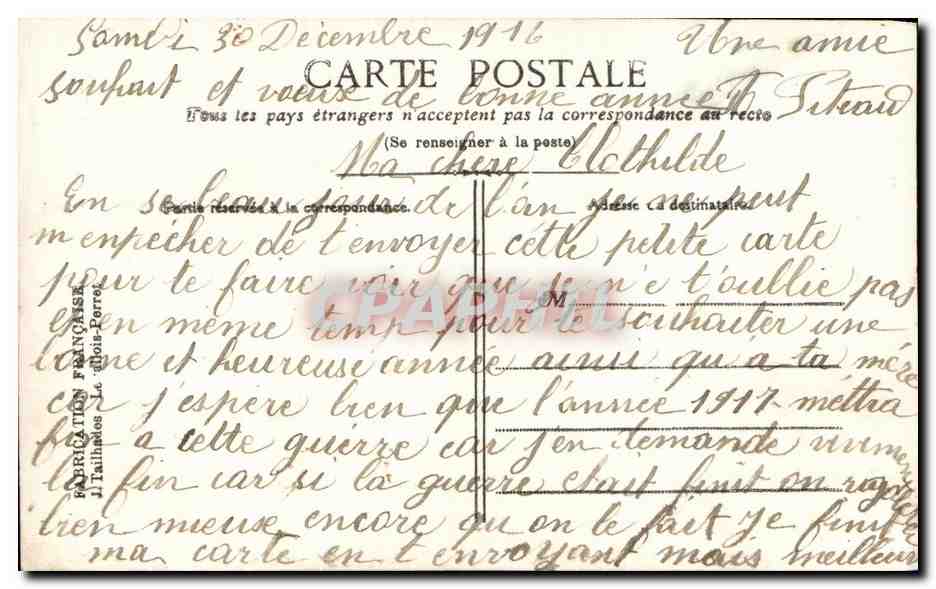 Samdi 30 Décembre 1916 Une amie
CARTE POSTALE
souhait et voeux de bonne année Piteaud
Tous les pays étrangers n'acceptent pas la correspondance au recto
(Se renseigner à la poste)
Ma chere Clothilde
En se beau jour de l'an je ne peut
Partie réservée à la correspondance. Adresse du destinataire.
m'enpécher de t'envoyer cette petite carte
pour te faire voir que je n'e t'oullie pas
CPAPHIL
M
et en même temp pour te souhaiter une
bonne et heureuse année ainsi qu'a ta mére
car j'espère bien que l'année 1917 mettra
fin a cette guerre car j'en demande vivment
la fin car si la guerre etait finit on
bien mieuse encore qu'on le fait Je finit
ma carte en t envoyant mais meilleur
FABRICATION FRANÇAISE
J. Tailhades - Levallois-Perret